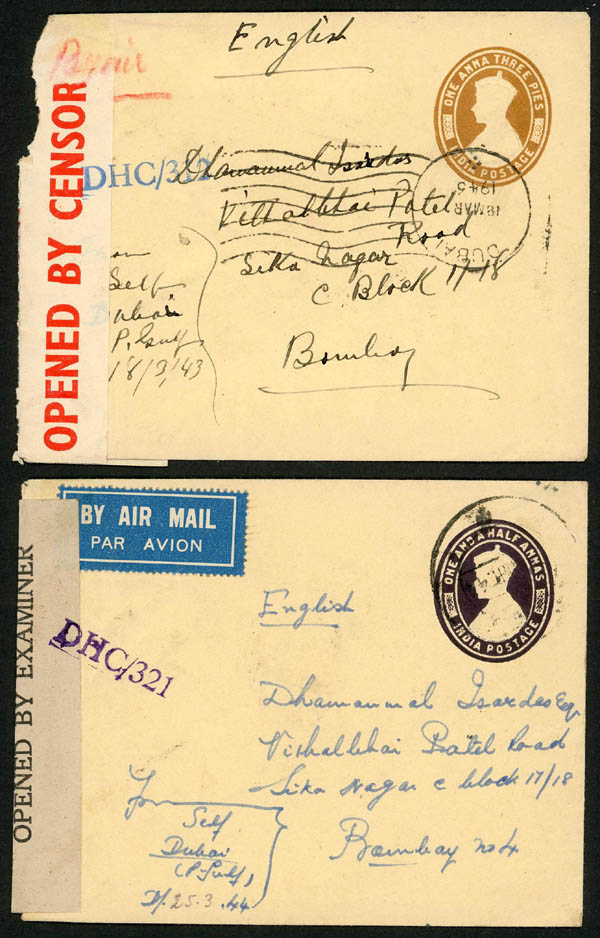 By air
English
ONE ANNA THREE PIES
INDIA POSTAGE
OPENED BY CENSOR
DHC/312
Dhamanmal Isardas
Vithalbhai Patel
Road
Sika Nagar
C. Block 17-18
Bombay
DUBAI
18 MAR
1943
Self
Dubai
P. Gulf
18/3/43
BY AIR MAIL
PAR AVION
ONE AND A HALF ANNAS
INDIA POSTAGE
English
OPENED BY EXAMINER
DHC/321
Dhamanmal Isardas Esqr
Vithalbhai Patel Road
Sika Nagar C block 17/18
Bombay No 4
From
Self
Dubai
(P. Gulf)
D/. 25.3.44